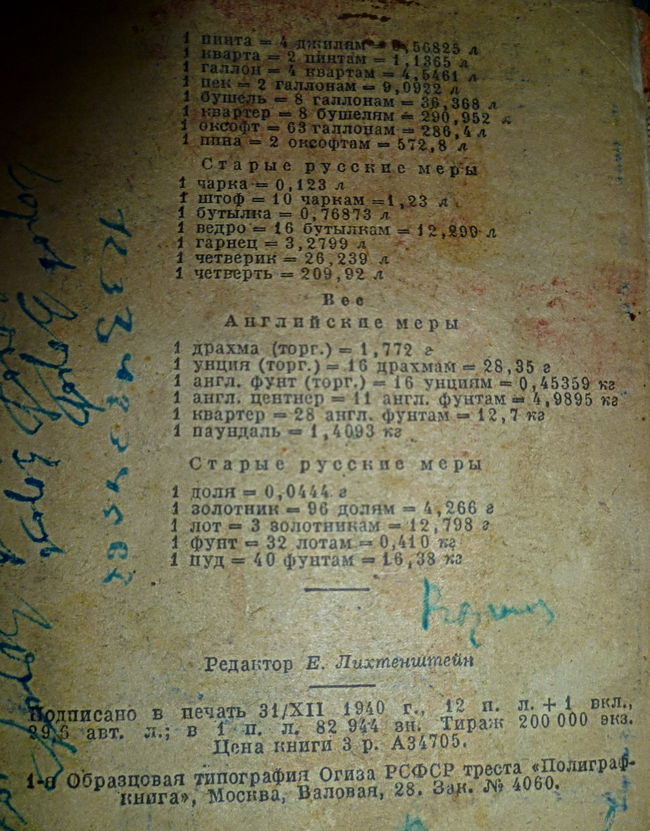 1 пинта = 4 джилям = 0,56825 л
1 кварта = 2 пинтам = 1,1365 л
1 галлон = 4 квартам = 4,5461 л
1 пек = 2 галлонам = 9,0922 л
1 бушель = 8 галлонам = 36,368 л
1 квартер = 8 бушелям = 290,952 л
1 оксофт = 63 галлонам = 286,4 л
1 пипа = 2 оксофтам = 572,8 л
Старые русские меры
1 чарка = 0,123 л
1 штоф = 10 чаркам = 1,23 л
1 бутылка = 0,76873 л
1 ведро = 16 бутылкам = 12,299 л
1 гарнец = 3,2799 л
1 четверик = 26,239 л
1 четверть = 209,92 л
Вес
Английские меры
1 драхма (торг.) = 1,772 г
1 унция (торг.) = 16 драхмам = 28,35 г
1 англ. фунт (торг.) = 16 унциям = 0,45359 кг
1 англ. центнер = 11 англ. фунтам = 4,9895 кг
1 квартер = 28 англ. фунтам = 12,7 кг
1 паундаль = 1,4093 кг
Старые русские меры
1 доля = 0,0444 г
1 золотник = 96 долям = 4,266 г
1 лот = 3 золотникам = 12,798 г
1 фунт = 32 лотам = 0,410 кг
1 пуд = 40 фунтам = 16,38 кг
Редактор Е. Лихтенштейн
Подписано в печать 31/XII 1940 г., 12 п. л. + 1 вкл.,
29,6 авт. л.; в 1 п. л. 82 944 зн. Тираж 200 000 экз.
Цена книги 3 р. А34705.
1-я Образцовая типография Огиза РСФСР треста «Полиграф-
книга», Москва, Валовая, 28. Зак. № 4060.